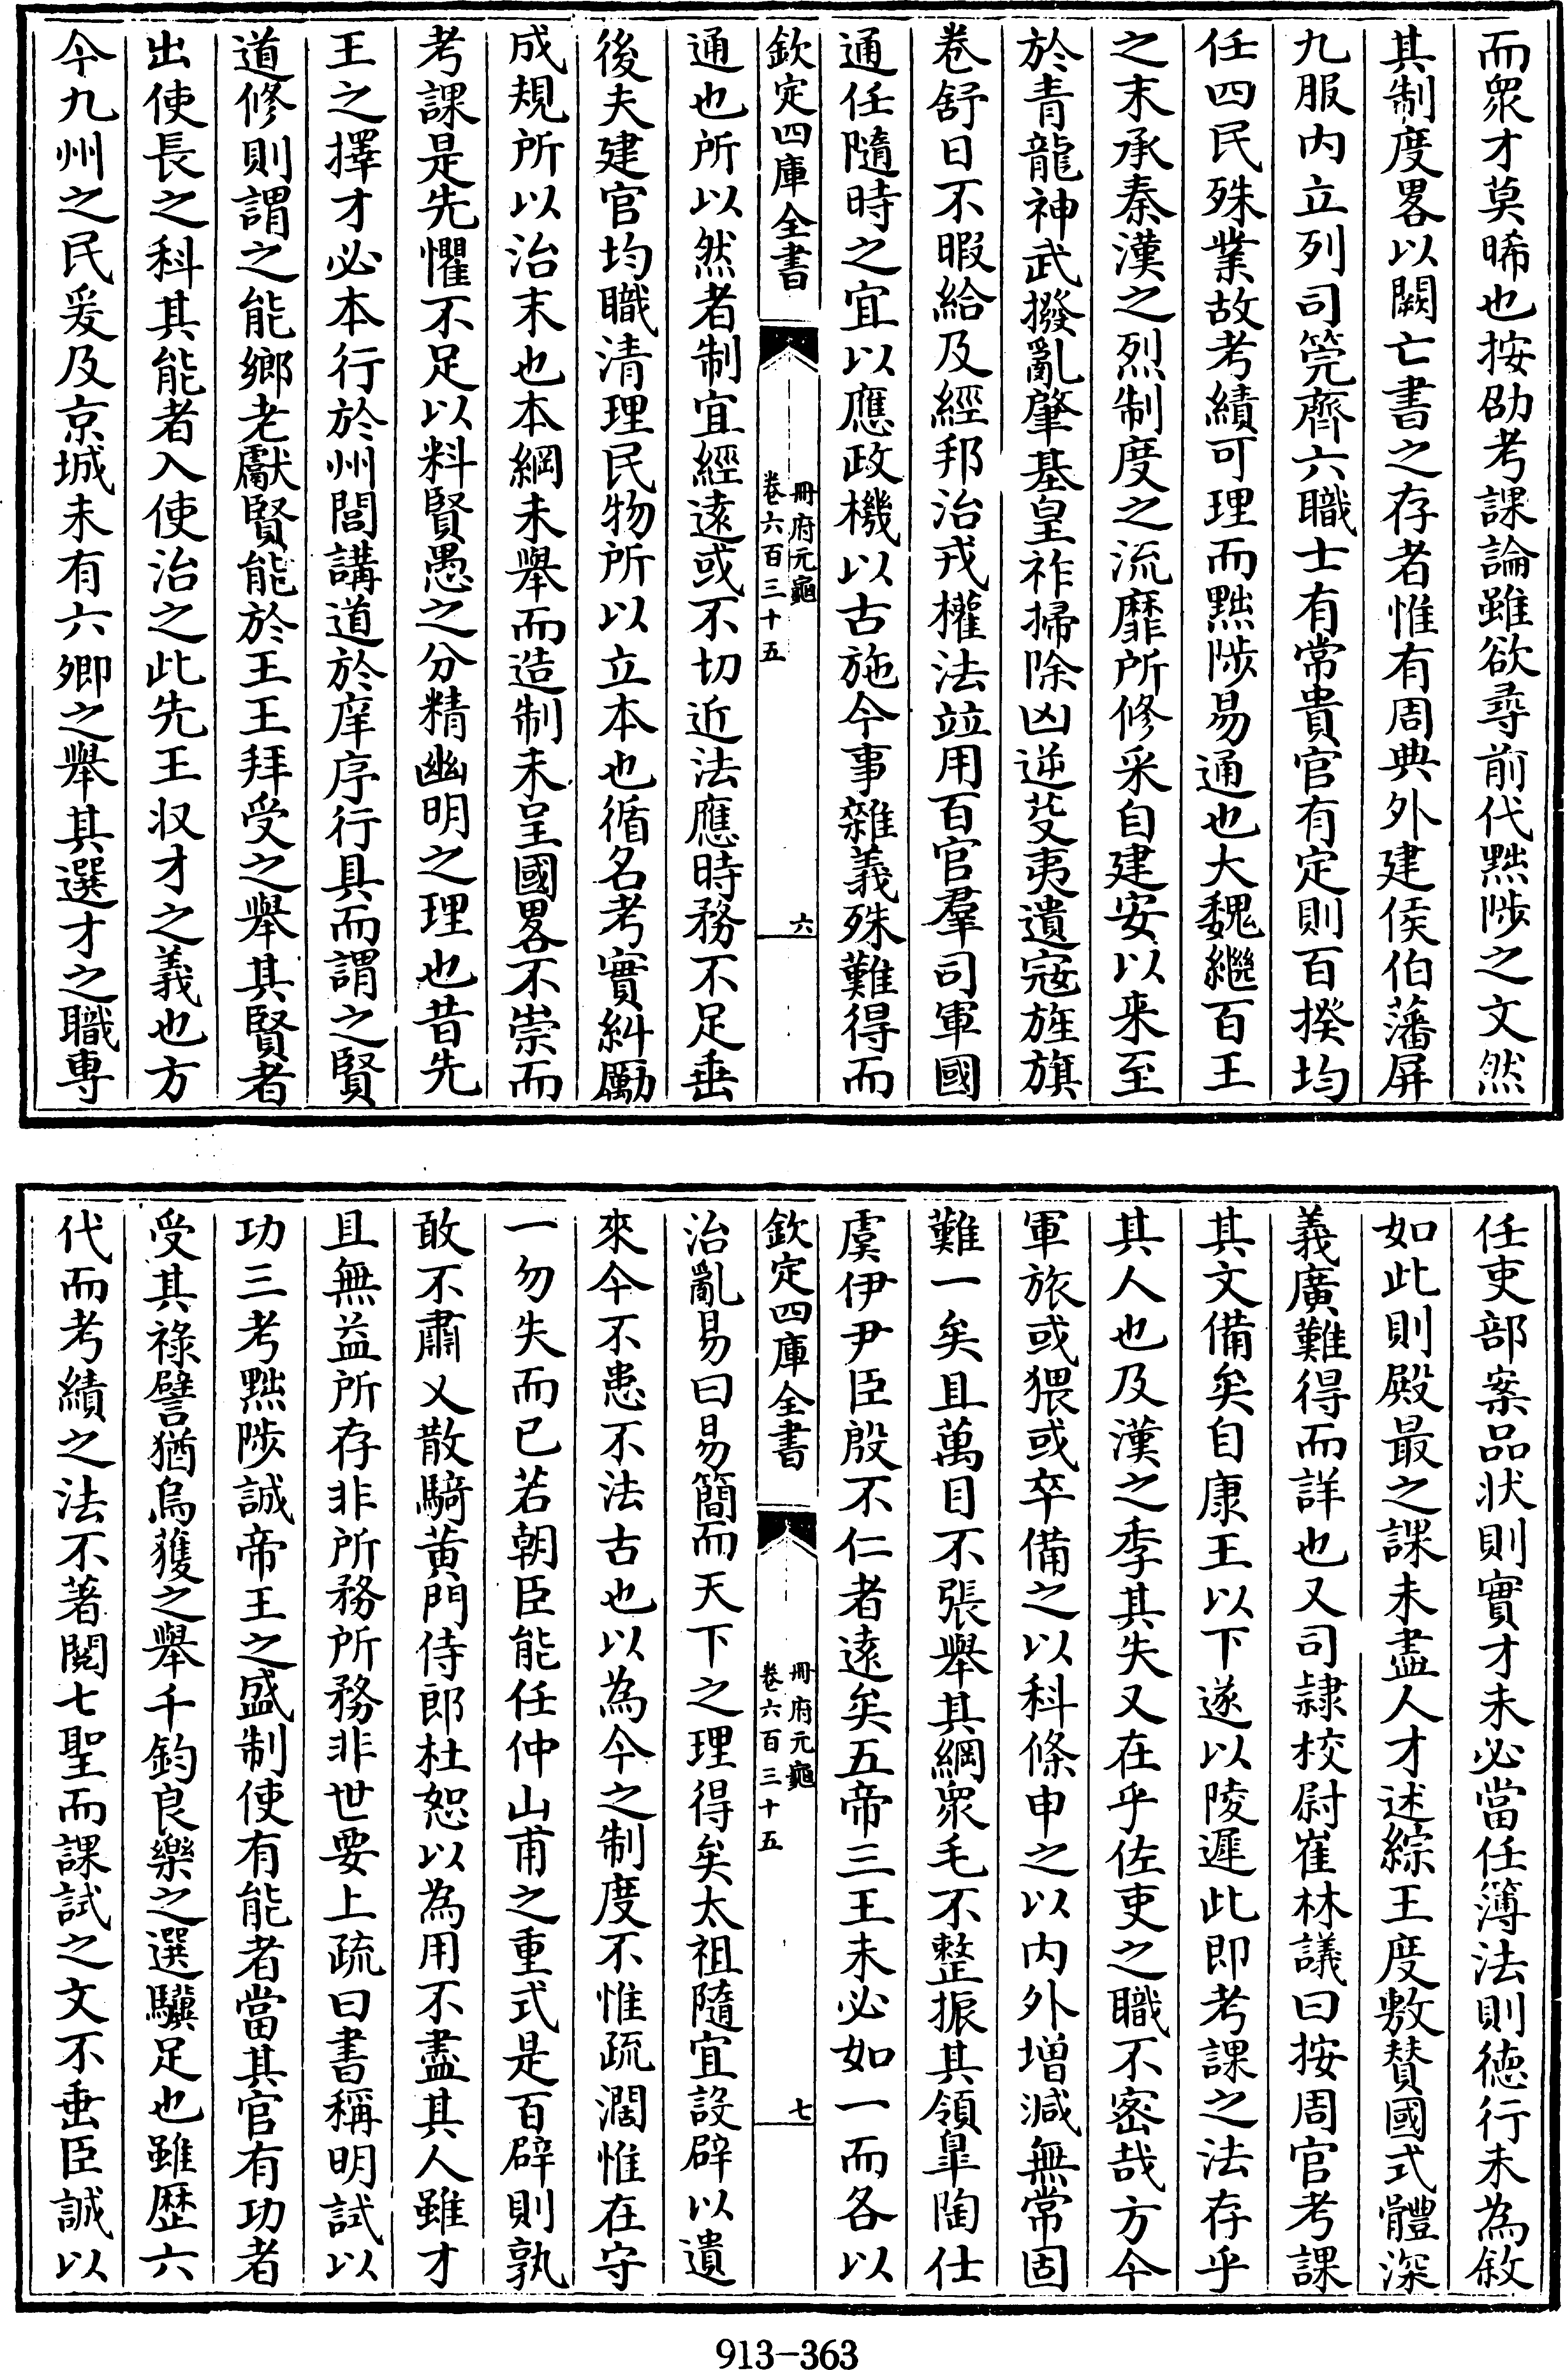 而眾才莫晞也按劭考課論雖欲尋前代黜陟之文然
其制度畧以闕亡書之存者惟有周典外建侯伯藩屏
九服内立列司筦齊六職士有常貴官有定則百揆均
任四民殊業故考績可理而黜陟易通也大魏繼百王
之末承秦漢之烈制度之流靡所修采自建安以来至
於青龍神武撥亂肇基皇祚掃除凶逆芟夷遺寇旌旗
卷舒日不暇給及經邦治戎權法竝用百官羣司軍國
通任隨時之宜以應政機以古施今事雜義殊難得而
欽定四庫全書
冊府元龜
卷六百三十五
六
通也所以然者制宜經遠或不切近法應時務不足垂
後夫建官均職清理民物所以立本也循名考實糾勵
成規所以治末也本綱未舉而造制未呈國畧不崇而
考課是先懼不足以料賢愚之分精幽明之理也昔先
王之擇才必本行於州閭講道於庠序行具而謂之賢
道修則謂之能鄉老獻賢能於王王拜受之舉其賢者
出使長之科其能者入使治之此先王収才之義也方
今九州之民爰及京城未有六卿之舉其選才之職専
任吏部案品状則實才未必當任簿法則徳行未為敘
如此則殿最之課未盡人才述綜王度敷賛國式體深
義廣難得而詳也又司隷校尉崔林議曰按周官考課
其文備矣自康王以下遂以陵遲此即考課之法存乎
其人也及漢之季其失又在乎佐吏之職不密哉方今
軍旅或猥或卒備之以科條申之以内外増減無常固
難一矣且萬目不張舉其綱衆毛不整振其領臯陶仕
虞伊尹臣殷不仁者遠矣五帝三王未必如一而各以
欽定四庫全書
冊府元龜
卷六百三十五
七
治亂易曰易簡而天下之理得矣太祖隨宜設辟以遺
來今不患不法古也以為今之制度不惟疏濶惟在守
一勿失而已若朝臣能任仲山甫之重式是百辟則孰
敢不肅乂散騎黄門侍郎杜恕以為用不盡其人雖才
且無益所存非所務所務非世要上疏曰書稱明試以
功三考黜陟誠帝王之盛制使有能者當其官有功者
受其祿譬猶烏獲之舉千鈞良樂之選驥足也雖歴六
代而考績之法不著閲七聖而課試之文不垂臣誠以
913-363